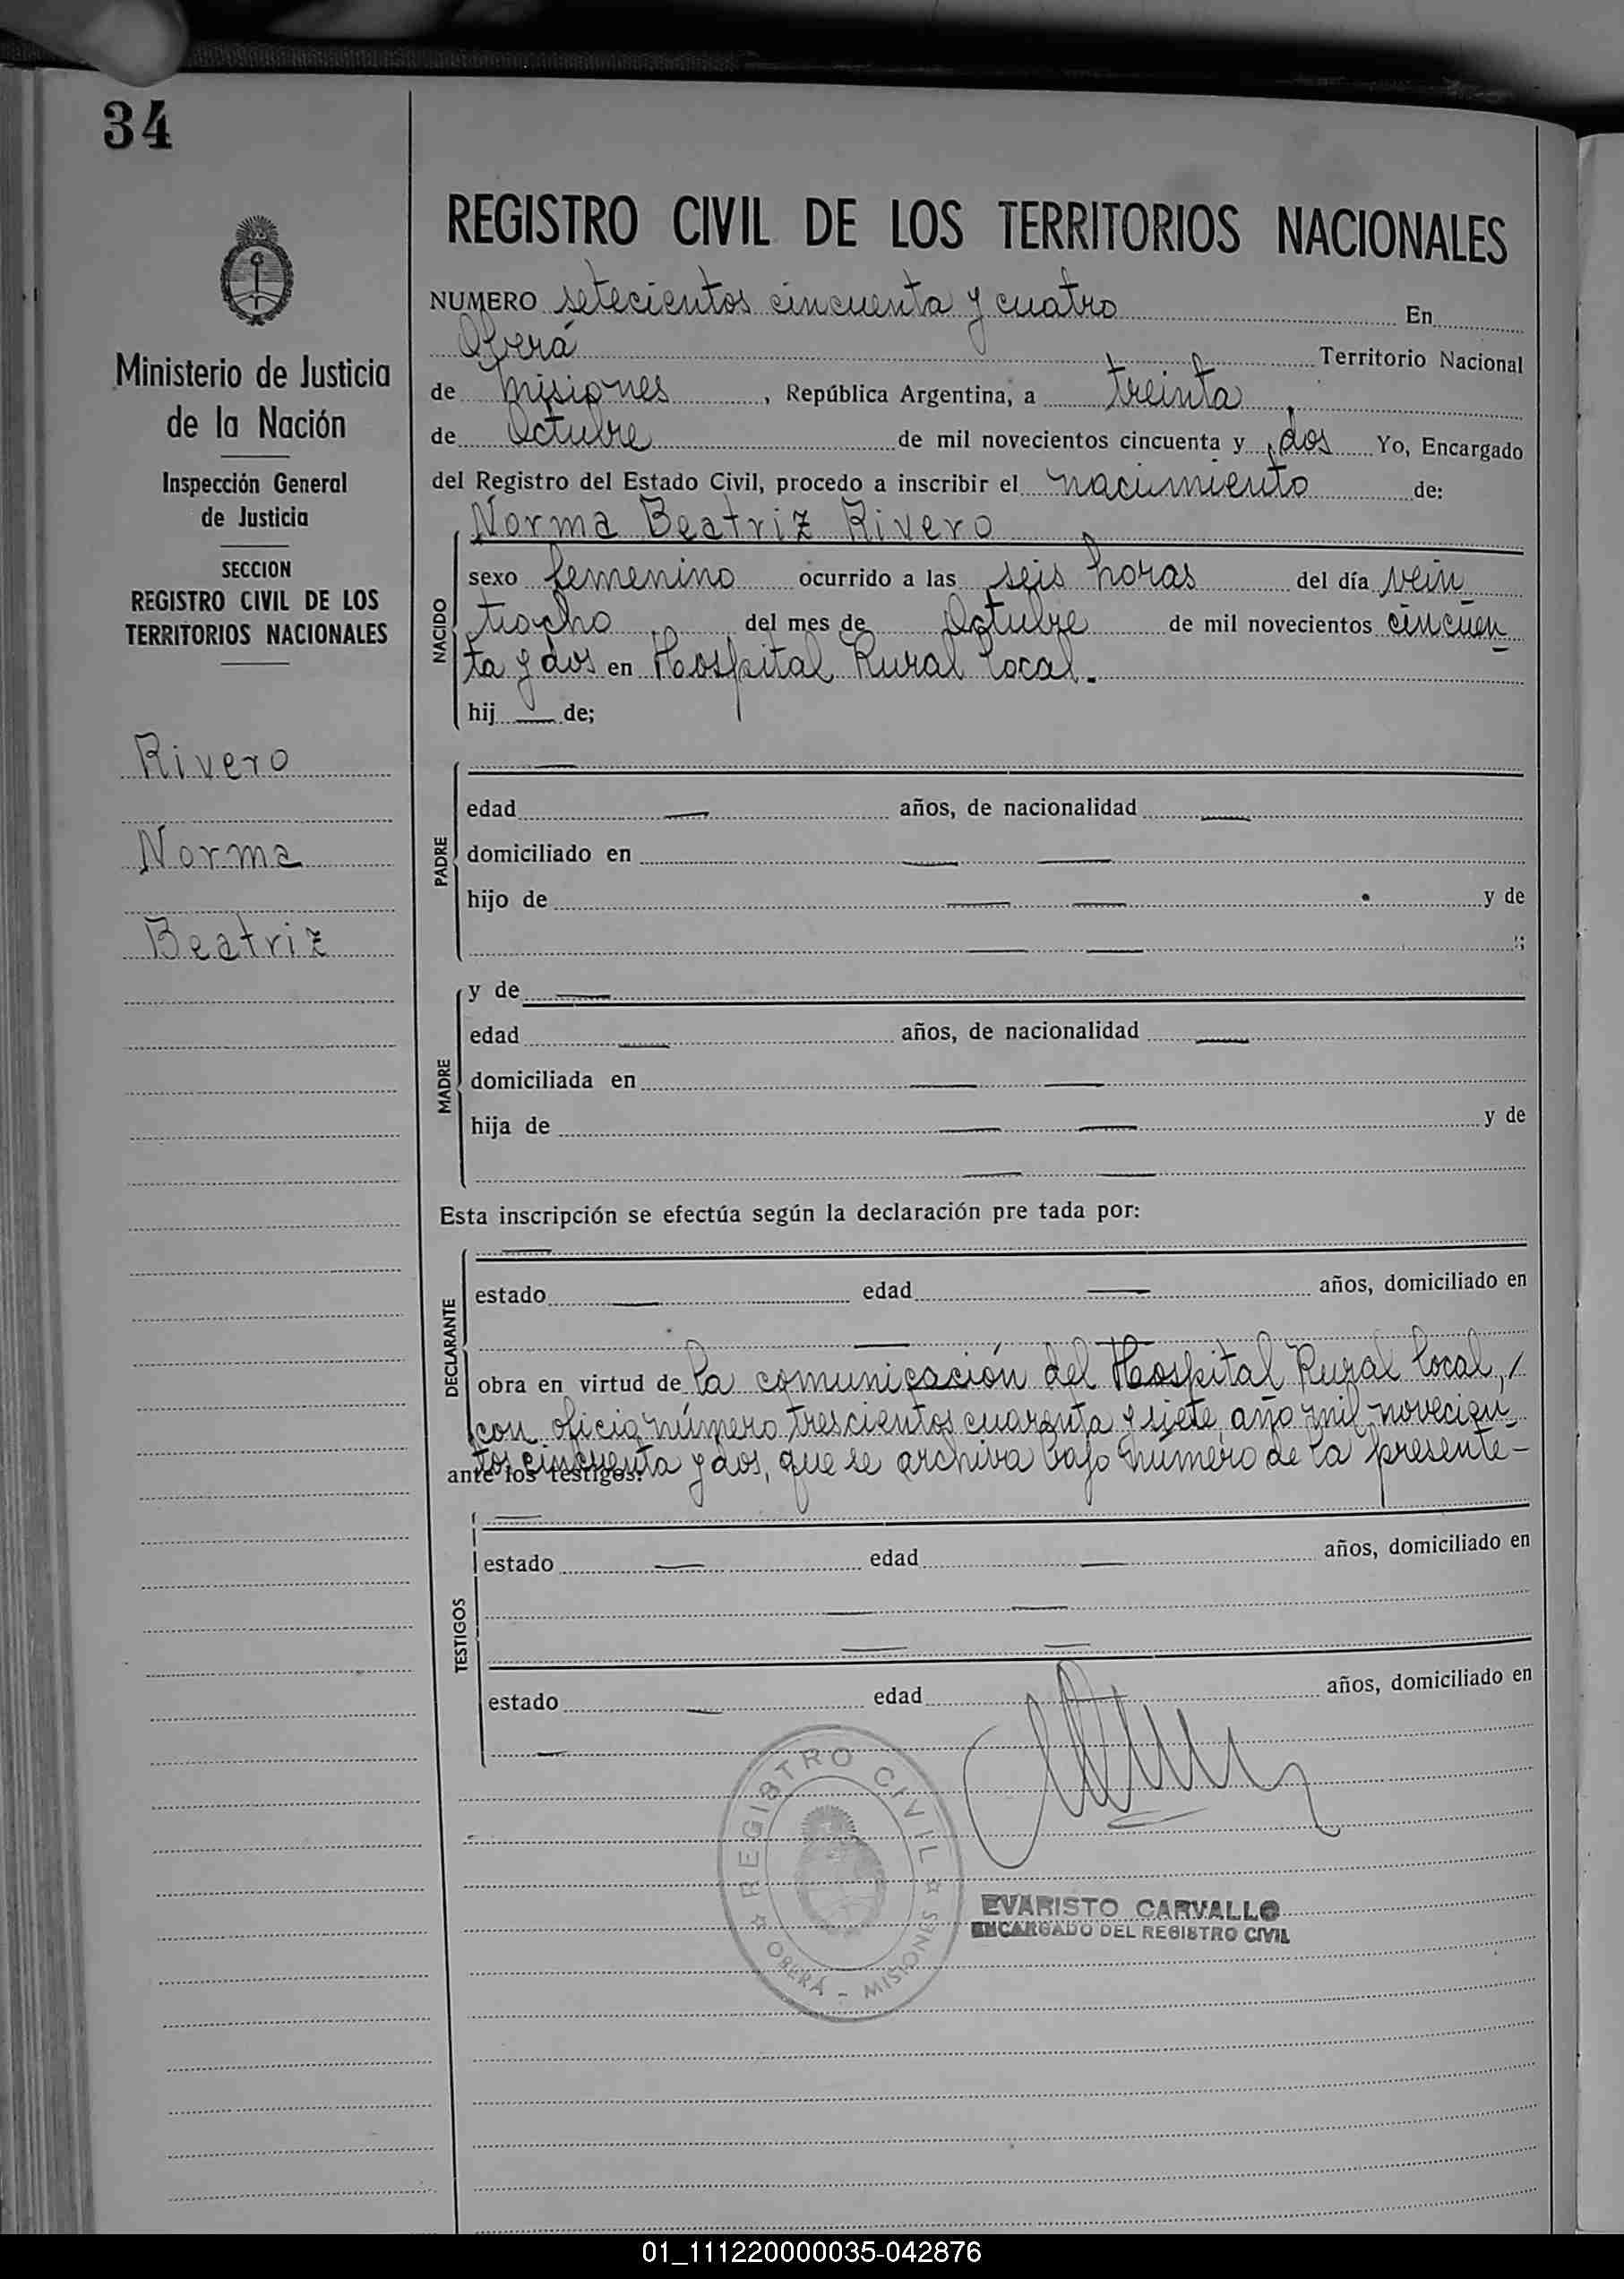 34
Ministerio de Justicia
de la Nación
Inspección General
de Justicia
SECCION
REGISTRO CIVIL DE LOS
TERRITORIOS NACIONALES
Rivero
Norma
Beatriz
REGISTRO CIVIL DE LOS TERRITORIOS NACIONALES
NUMERO setecientos cincuenta y cuatro En
Oberá Territorio Nacional
de Misiones, República Argentina, a treinta
de Octubre de mil novecientos cincuenta y dos Yo, Encargado
del Registro del Estado Civil, procedo a inscribir el nacimiento de:
Norma Beatriz Rivero
NACIDO
sexo femenino ocurrido a las seis horas del día vein
tiocho del mes de Octubre de mil novecientos cincuen
ta y dos en Hospital Rural local.
hij — de;
PADRE
—
edad — años, de nacionalidad —
domiciliado en — —
hijo de — — y de
— — ;
MADRE
y de —
edad — años, de nacionalidad —
domiciliada en — —
hija de — — y de
— —
Esta inscripción se efectúa según la declaración pre tada por:
DECLARANTE
—
estado — edad — años, domiciliado en
— —
obra en virtud de la comunicación del Hospital Rural local, /
con oficio número trescientos cuarenta y siete, año mil novecien
tos cincuenta y dos, que se archiva bajo número de la presente-
ante los testigos:
TESTIGOS
—
estado — edad — años, domiciliado en
— —
— —
estado — edad años, domiciliado en
—
REGISTRO CIVIL
OBERÁ - MISIONES
EVARISTO CARVALLO
ENCARGADO DEL REGISTRO CIVIL
01_111220000035-042876